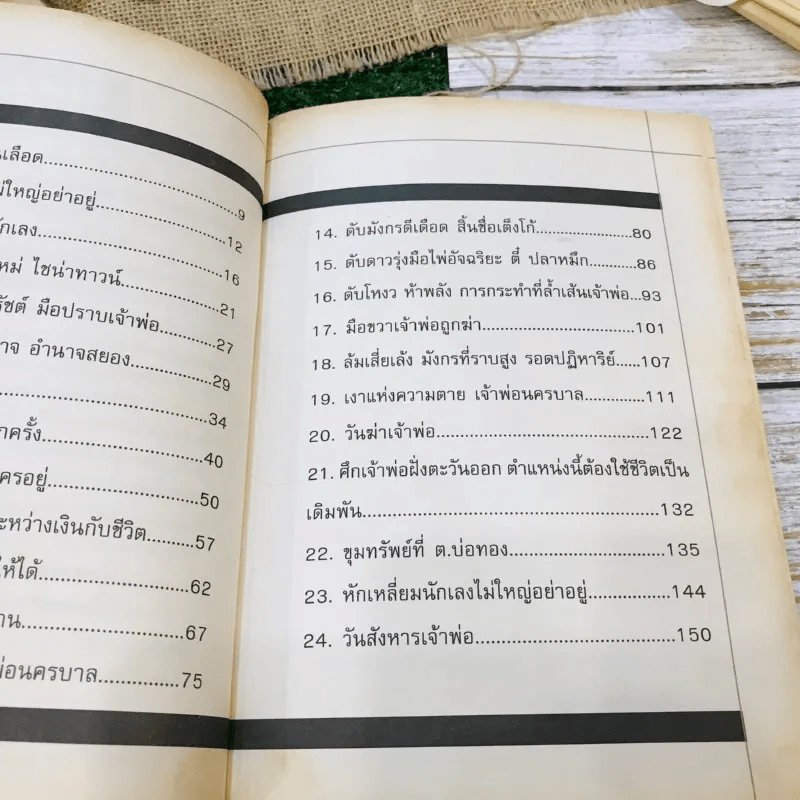 เลือด..........9
ใหญ่อย่าอยู่..........12
กเลง..........16
หม่ ไชน่าทาวน์..........21
รัชต์ มือปราบเจ้าพ่อ..........27
าจ อำนาจสยอง..........29
..........34
กครั้ง..........40
ครอยู่..........50
ะหว่างเงินกับชีวิต..........57
ให้ได้..........62
าน..........67
พ่อนครบาล..........75
14. ดับมังกรดีเดือด สิ้นชื่อเต็งโก้..........80
15. ดับดาวรุ่งมือไพ่อัจฉริยะ ตี๋ ปลาหมึก..........86
16. ดับโหงว ห้าพลัง การกระทำที่ล้ำเส้นเจ้าพ่อ...93
17. มือขวาเจ้าพ่อถูกฆ่า..........101
18. ล้มเสี่ยเล้ง มังกรที่ราบสูง รอดปฏิหาริย์......107
19. เงาแห่งความตาย เจ้าพ่อนครบาล..........111
20. วันฆ่าเจ้าพ่อ..........122
21. ศึกเจ้าพ่อฝั่งตะวันออก ตำแหน่งนี้ต้องใช้ชีวิตเป็น
เดิมพัน..........132
22. ขุมทรัพย์ที่ ต.บ่อทอง..........135
23. หักเหลี่ยมนักเลงไม่ใหญ่อย่าอยู่..........144
24. วันสังหารเจ้าพ่อ..........150